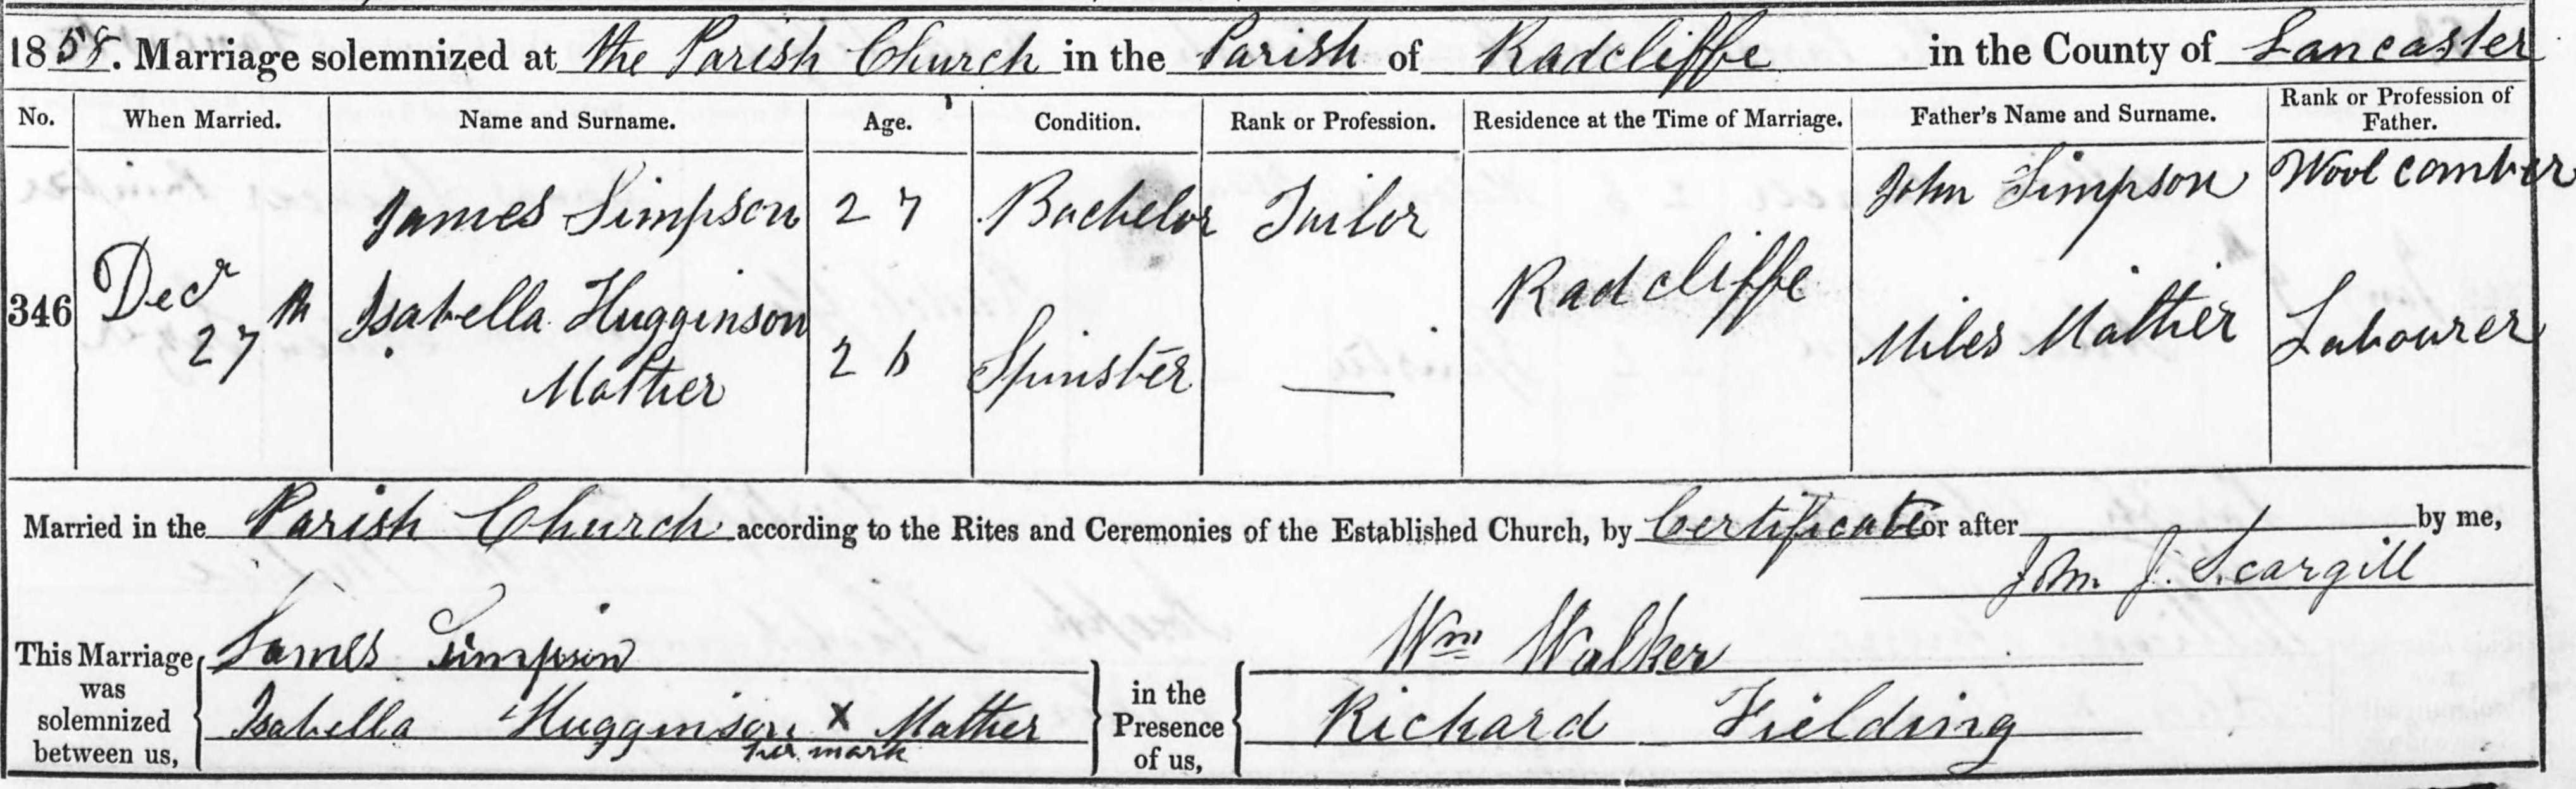 1858. Marriage solemnized at the Parish Church in the Parish of Radcliffe in the County of Lancaster
No. When Married. Name and Surname. Age. Condition. Rank or Profession. Residence at the Time of Marriage. Father's Name and Surname. Rank or Profession of Father.
346 Decr 27th
James Simpson 27 Bachelor Tailor Radcliffe John Simpson Wool comber
Isabella Hugginson Mather 26 Spinster — Miles Mather Labourer
Married in the Parish Church according to the Rites and Ceremonies of the Established Church, by Certificate or after by me,
John J. Scargill
This Marriage was solemnized between us,
James Simpson
Isabella Hugginson X Mather
her mark
in the Presence of us,
Wm Walker
Richard Fielding